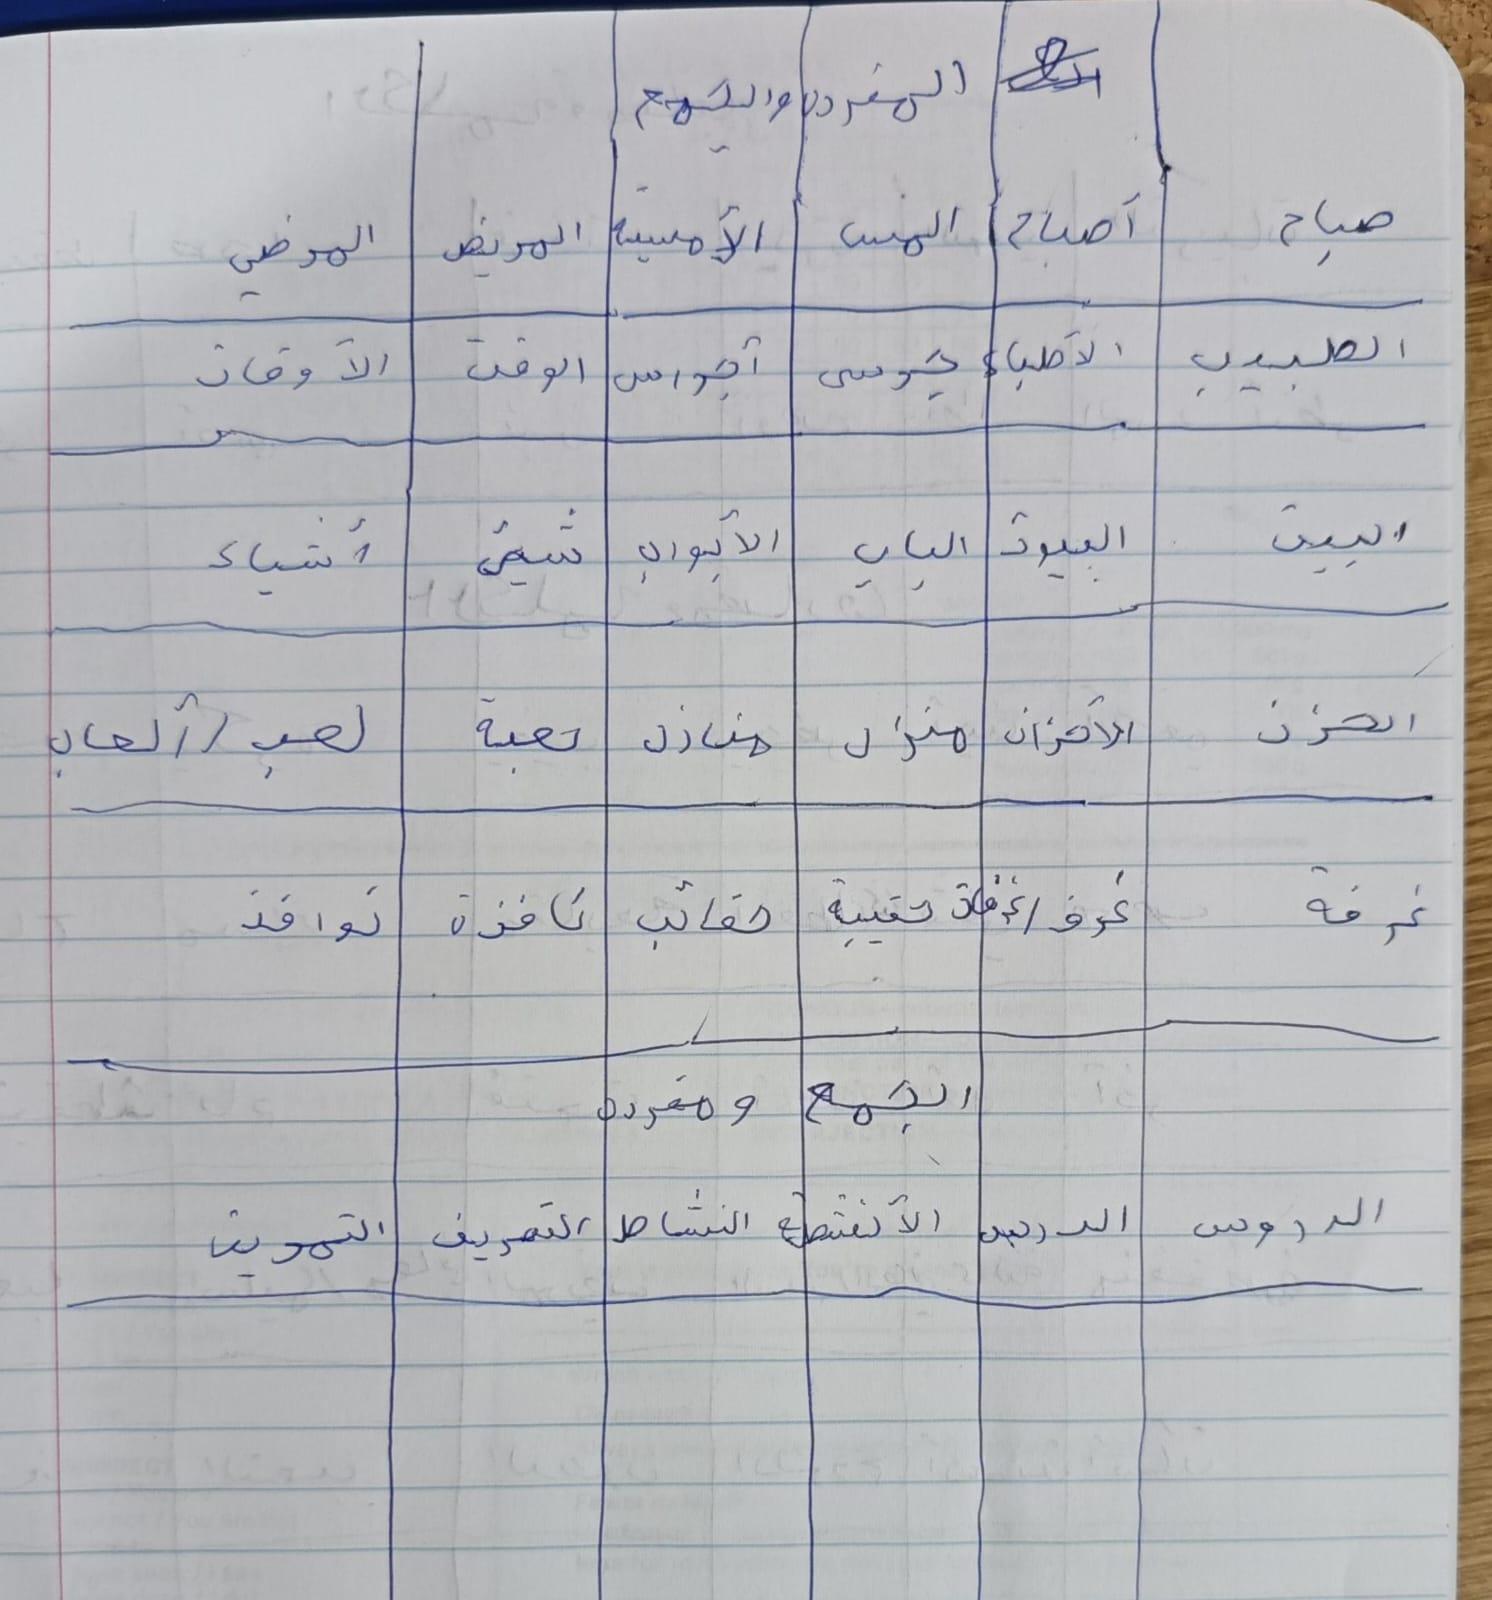 المفرد والجمع
صباح آصباح المس الأمسية المريض المرضي
الطبيب الأطباء جرس آجراس الوقت الآوقات
البيت البيوت الباب الآبواب شيئ أشياء
الحزن الآحزان منزل منازل تعبة لعب / ألعاب
غرفة غرف / غرفات حقيبة حقائب نافذة نوافذ
الجمع ومفرده
الدروس الدرس الآنشطة النشاط التصريف التمرين